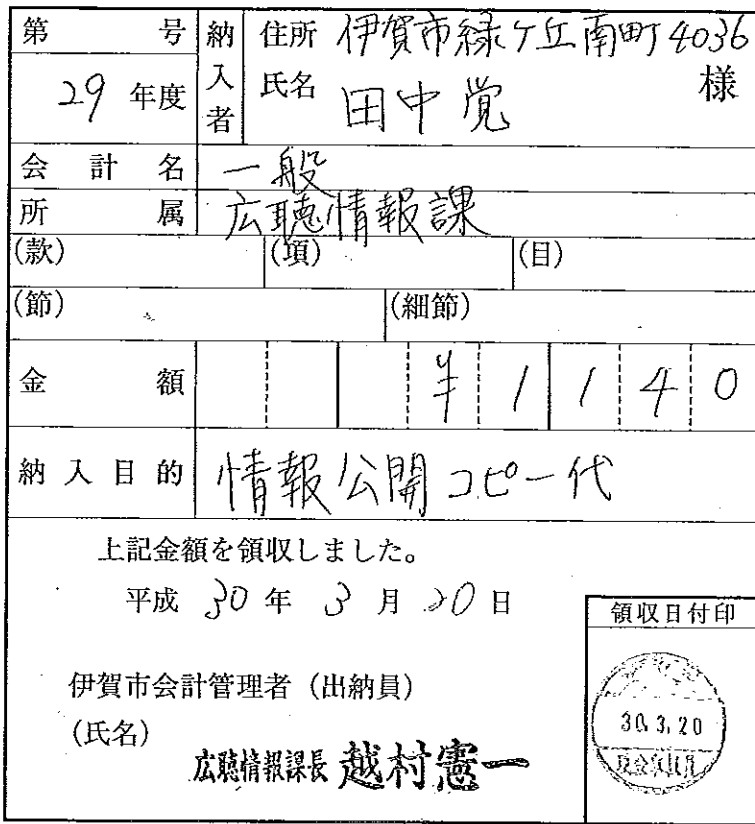 第 号
29 年度
納入者
住所 伊賀市緑ケ丘南町4036
氏名 田中覚 様
会計名 一般
所属 広聴情報課
(款) (項) (目)
(節) (細節)
金額 ¥1140
納入目的 情報公開コピー代
上記金額を領収しました。
平成 30 年 3 月 20 日
伊賀市会計管理者(出納員)
(氏名)
広聴情報課長 越村憲一
領収日付印
30.3.20